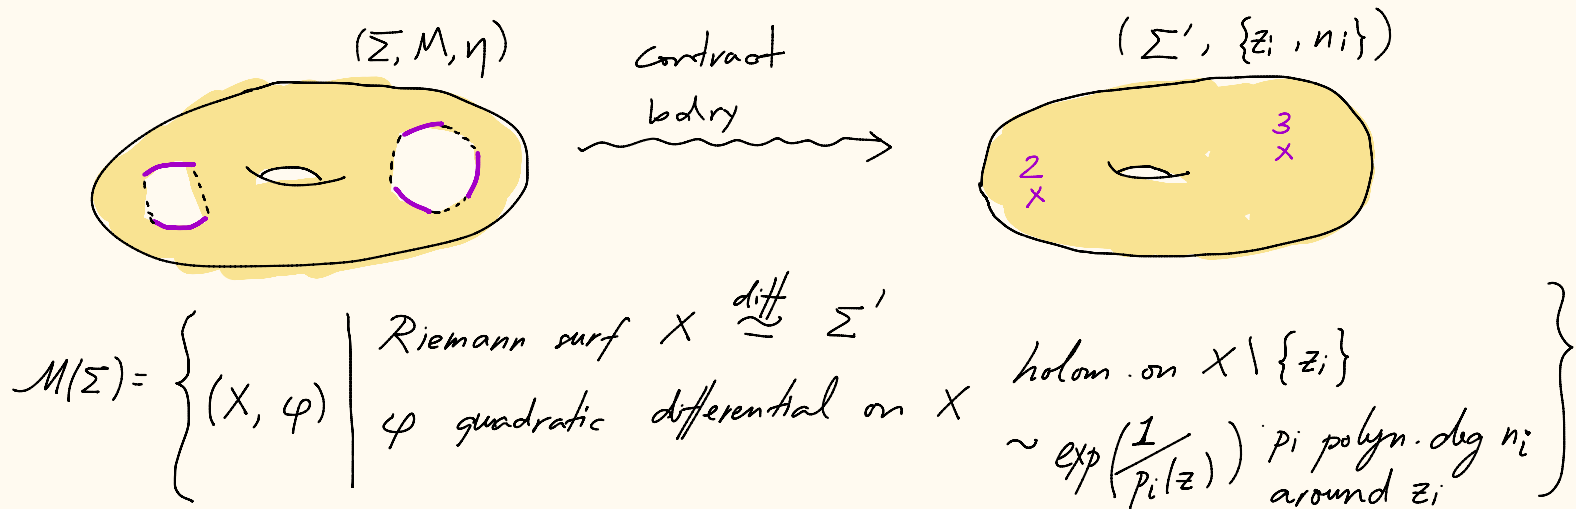 (Σ, M, η)
contract
bdry
(Σ', {z_i, n_i})
2
x
3
x
M(Σ) = { (X, φ) | Riemann surf X ≅ Σ'
diff
φ quadratic differential on X
holom. on X \ {z_i}
~ exp(1/p_i(z)) p_i polyn. deg n_i
around z_i }